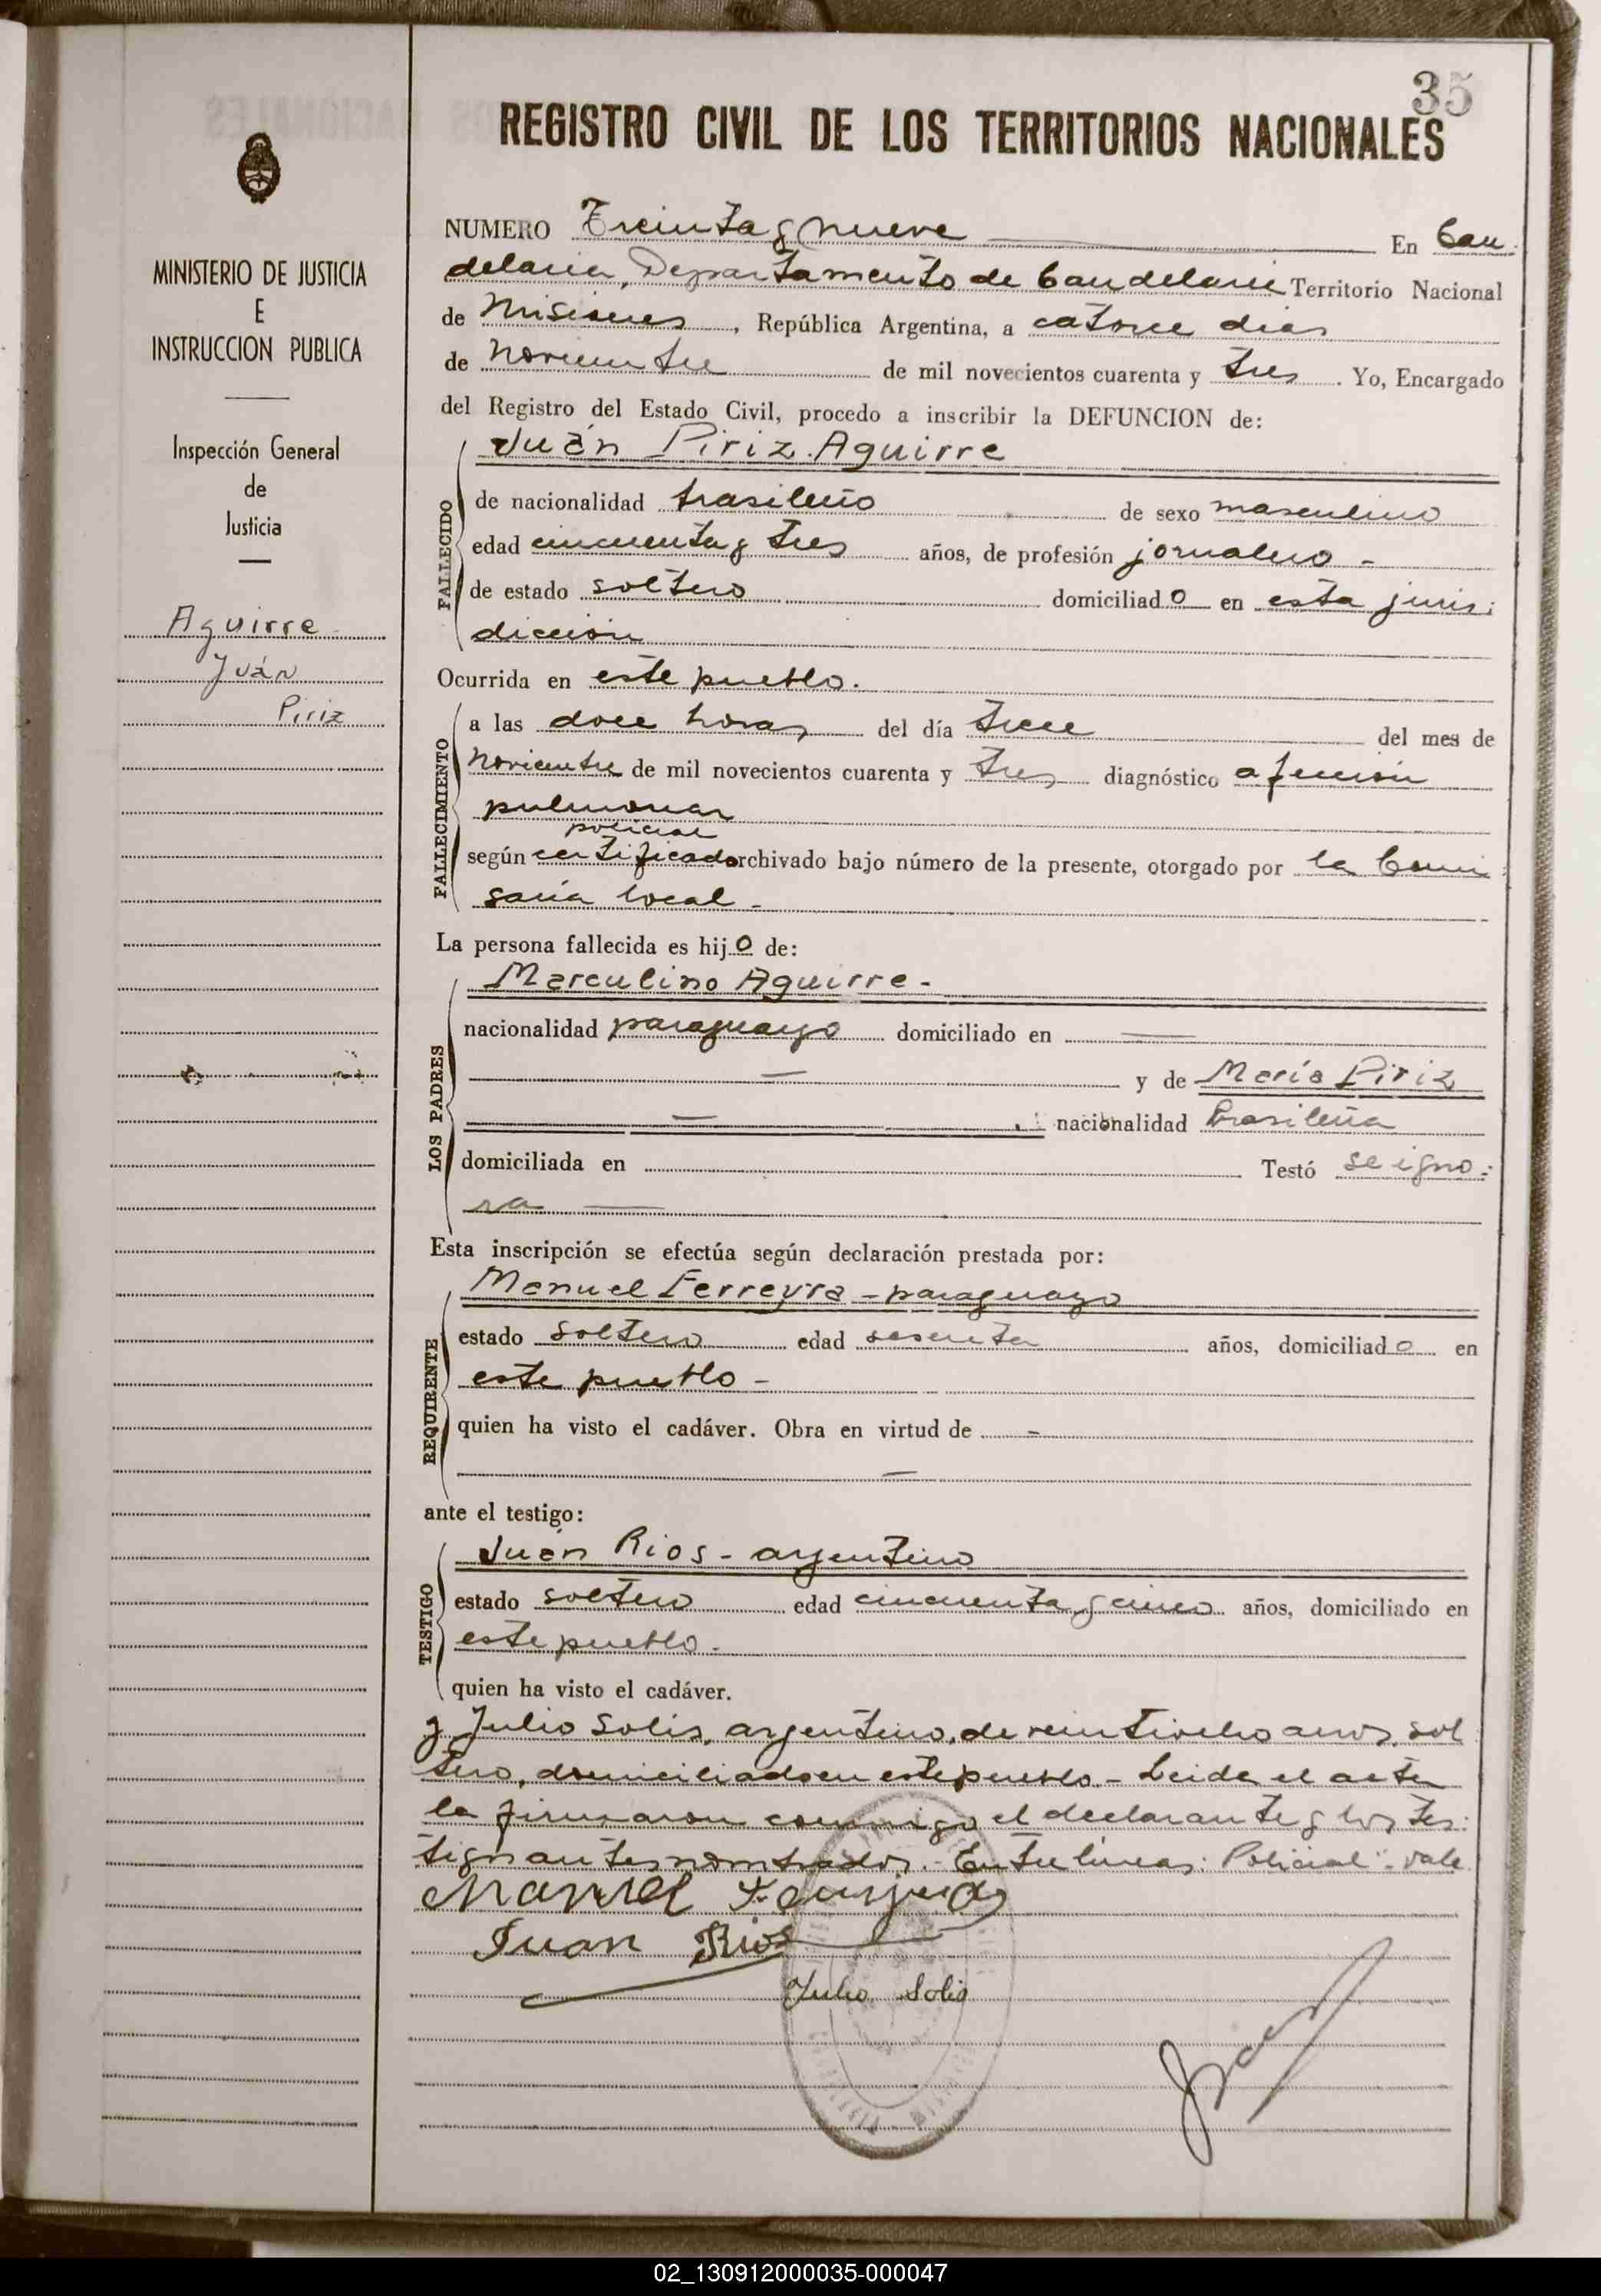 35
REGISTRO CIVIL DE LOS TERRITORIOS NACIONALES
MINISTERIO DE JUSTICIA
E
INSTRUCCION PUBLICA
Inspección General
de
Justicia
Aguirre
Juán
Piriz
NUMERO Treinta y nueve En Can
delaria, Departamento de Candelaria Territorio Nacional
de Misiones, República Argentina, a catorce dias
de noviembre de mil novecientos cuarenta y tres. Yo, Encargado
del Registro del Estado Civil, procedo a inscribir la DEFUNCION de:
Juán Piriz Aguirre
FALLECIDO
de nacionalidad brasileño de sexo masculino
edad cincuenta y tres años, de profesión jornalero -
de estado soltero domiciliado en esta juris:
dicción
Ocurrida en este pueblo.
FALLECIMIENTO
a las doce horas del día trece del mes de
noviembre de mil novecientos cuarenta y tres diagnóstico afección
pulmonar
policial
según certificado archivado bajo número de la presente, otorgado por la Comi
saria local -
La persona fallecida es hijo de:
LOS PADRES
Marculino Aguirre -
nacionalidad paraguayo domiciliado en —
— y de María Piriz
— nacionalidad brasileña
domiciliada en Testó se igno:
ra —
Esta inscripción se efectúa según declaración prestada por:
REQUIRENTE
Manuel Ferreyra - paraguayo
estado soltero edad sesenta años, domiciliado en
este pueblo -
quien ha visto el cadáver. Obra en virtud de -
—
ante el testigo:
TESTIGO
Juán Rios - argentino
estado soltero edad cincuenta y cinco años, domiciliado en
este pueblo.
quien ha visto el cadáver.
y Julio Solis, argentino, de veintiocho años, sol
tero, domiciliado en este pueblo - Leida el acta
la firmaron conmigo el declarante y los tes:
tigos antes nombrados. - Entre líneas: "Policial" - vale
Manuel
Juan Rios
Julio Solis
02_130912000035-000047